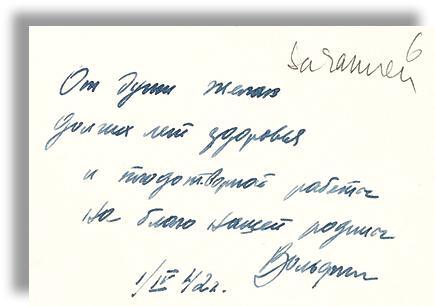 От души желаю
долгих лет здоровья
и плодотворной работы
на благо нашей родины
1/IV 42г.